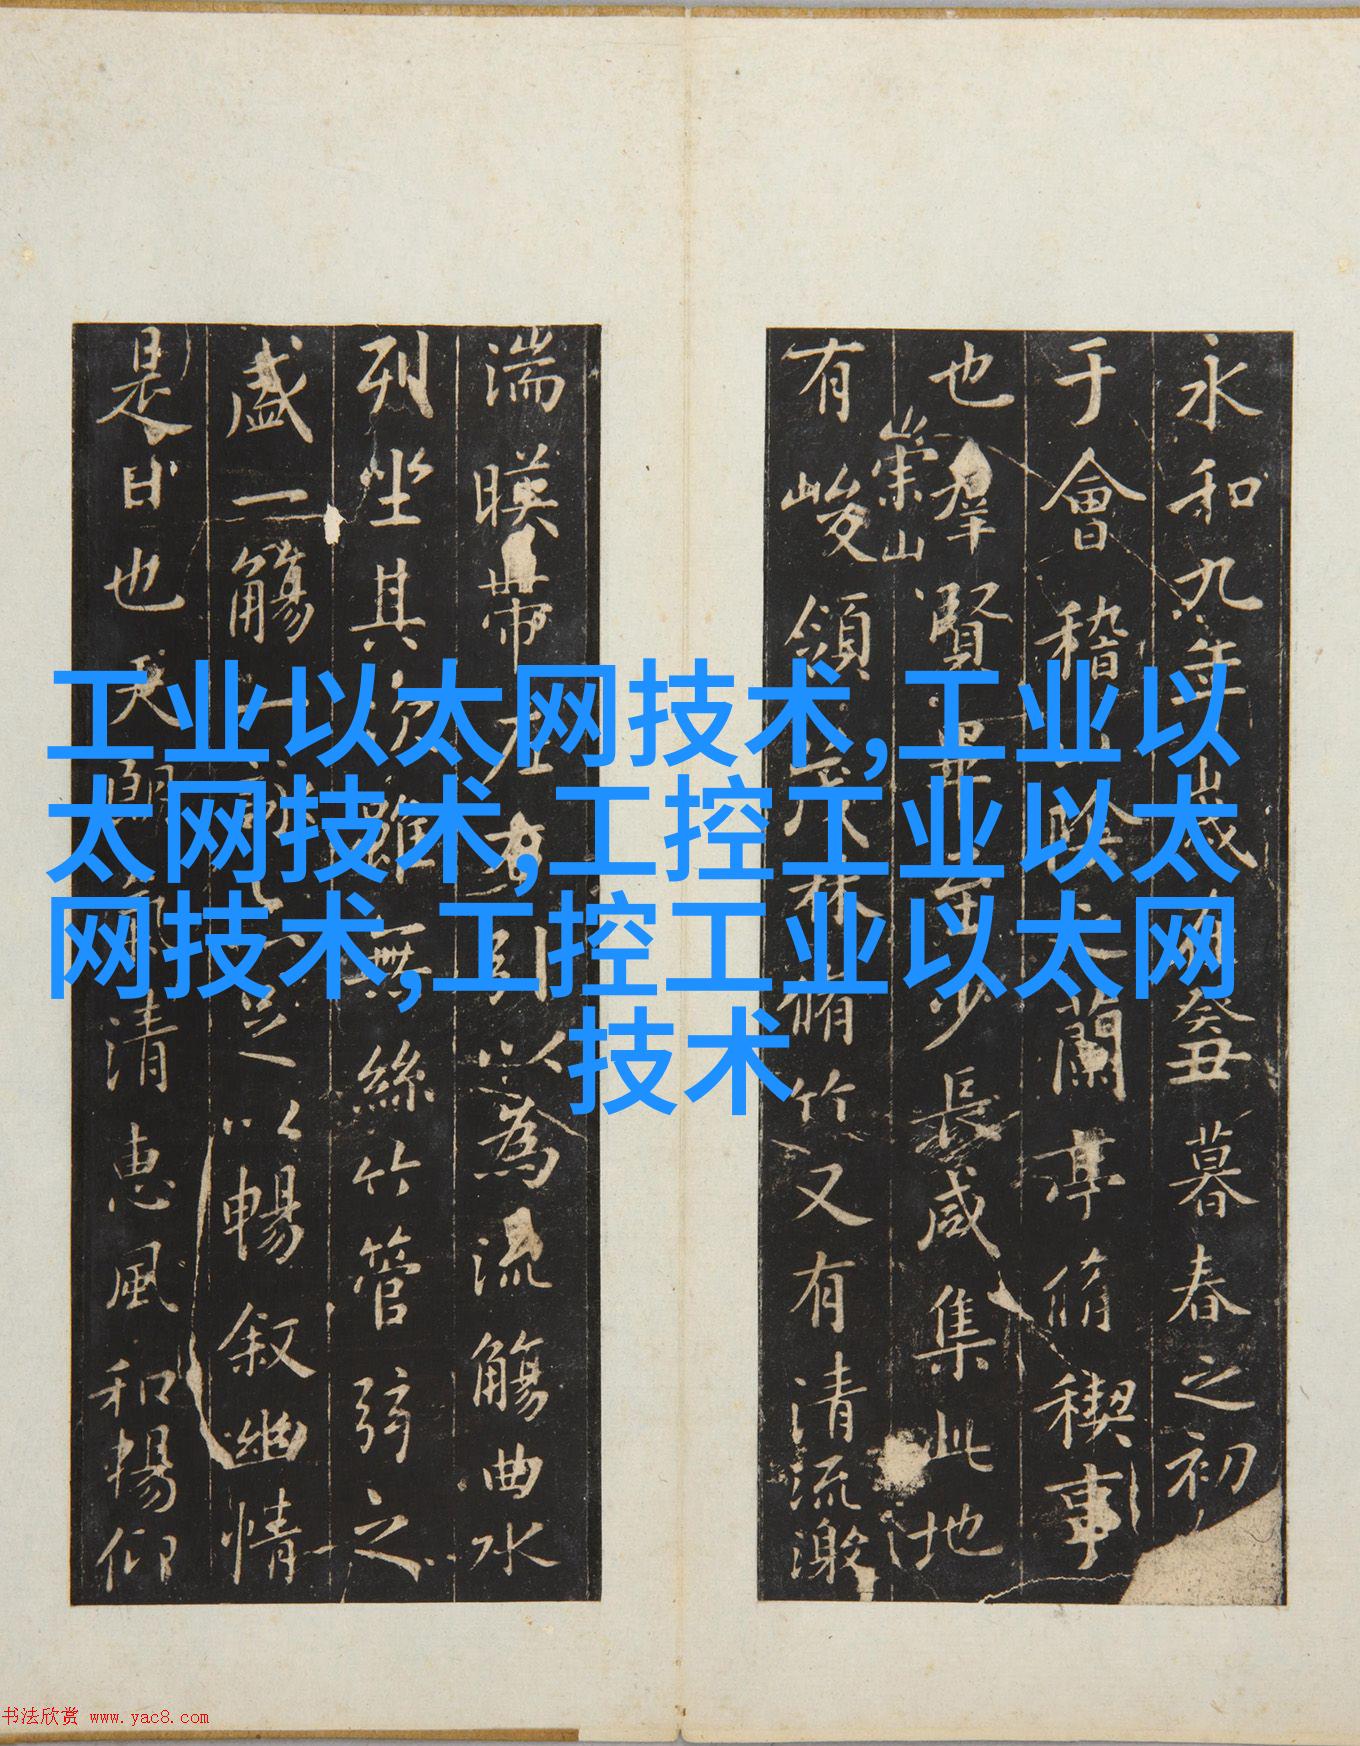 永和九年歲在癸丑暮春之初
于會稽山陰之蘭亭脩稧事
也羣賢畢至少長咸集此地
有崇山峻領茂林脩竹又有清流激
湍暎帶左右引以為流觴曲水
列坐其次雖無絲竹管弦之
盛一觴一詠亦足以暢敘幽情
是日也天朗氣清惠風和暢仰
工业以太网技术,工业以
太网技术,工控工业以太
网技术,工控工业以太网
技术
书法欣赏 www.yac8.com